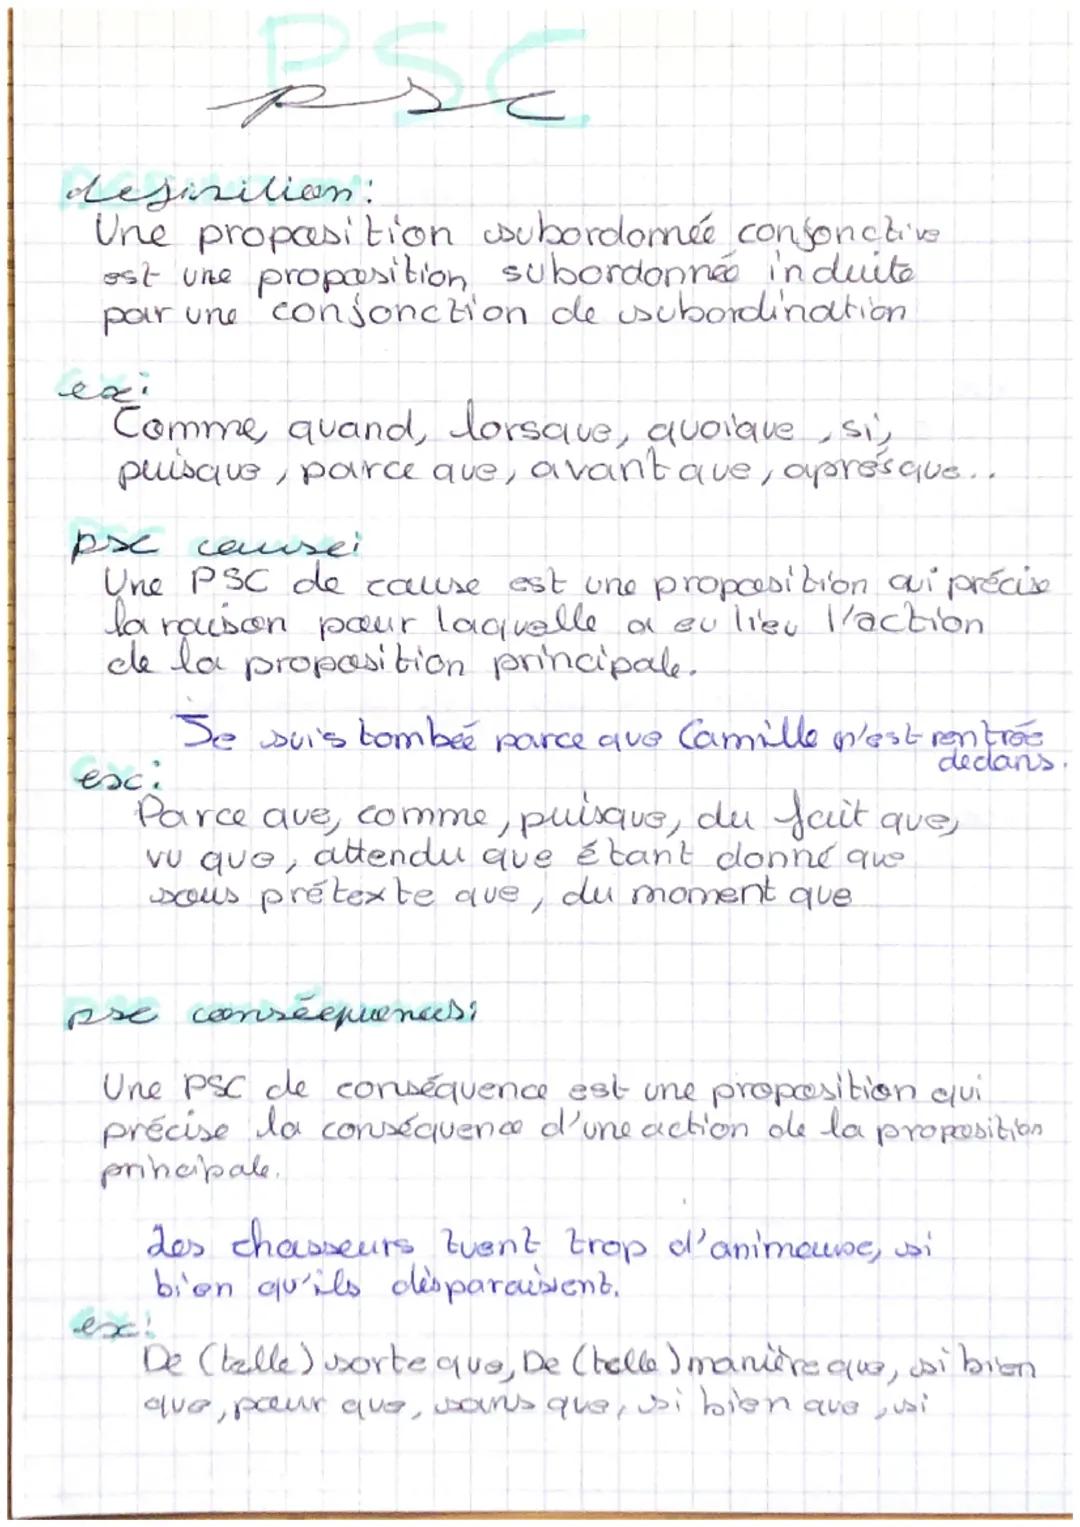 PSC
psc
définition:
Une proposition subordonnée conjonctive
est une proposition subordonnée induite
par une conjonction de subordination
ex:
Comme, quand, lorsque, quoique, si,
puisque, parce que, avant que, après que..
psc cause:
Une PSC de cause est une proposition qui précise
la raison pour laquelle a eu lieu l'action
de la proposition principale.
Je suis tombée parce que Camille m'est rentrée
dedans.
ex:
Parce que, comme, puisque, du fait que,
vu que, attendu que étant donné que
sous prétexte que, du moment que
psc conséquences:
Une PSC de conséquence est une proposition qui
précise la conséquence d'une action de la proposition
principale.
Les chasseurs tuent trop d'animaux, si
bien qu'ils disparaissent.
ex:
De (telle) sorte que, De (telle) manière que, si bien
que, pour que, sans que, si bien que, si